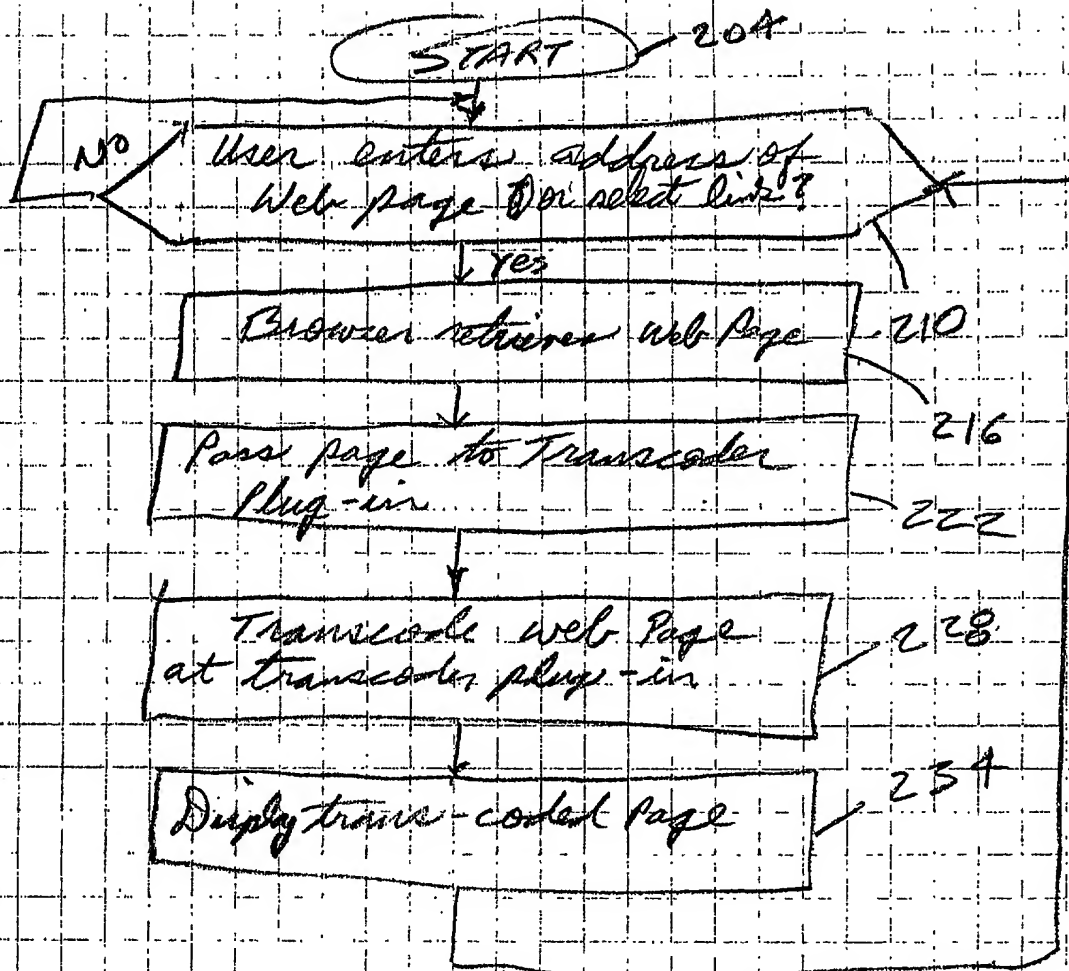 START
204
No
User enters address of
Web page or select link?
yes
210
Browser retrieves Web Page
216
Pass page to Transcoder
Plug-in
222
Transcode web Page
at transcoder plug-in
228
Disply trans-coded Page
234